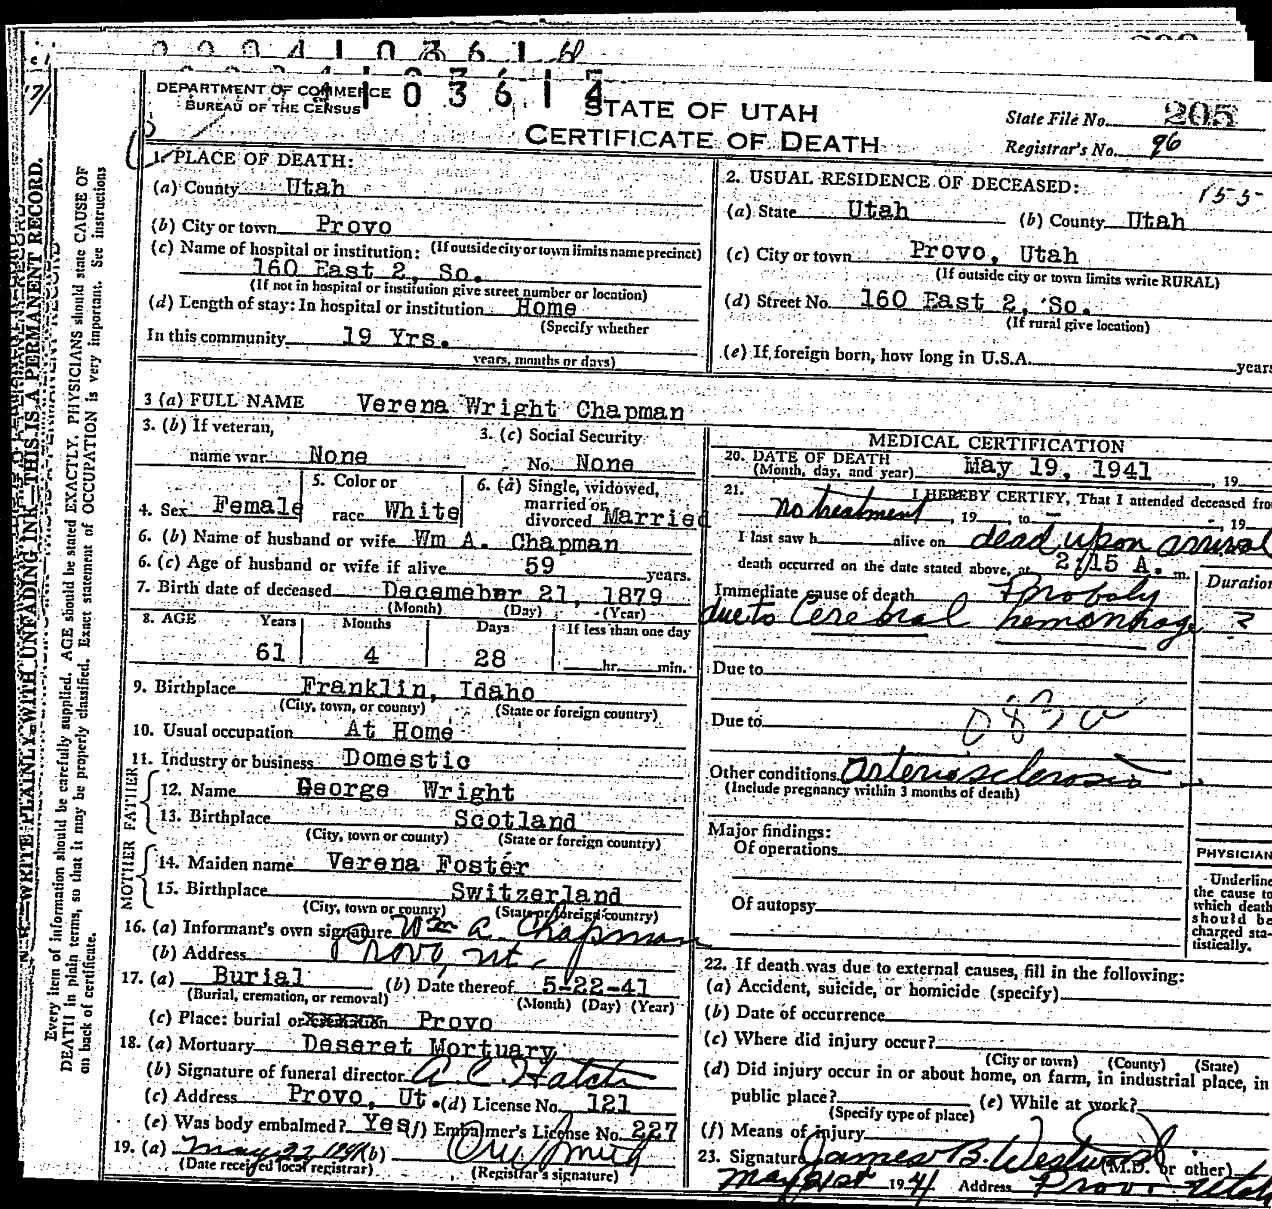 0004103616
DEPARTMENT OF COMMERCE
BUREAU OF THE CENSUS
103614
STATE OF UTAH
CERTIFICATE OF DEATH
State File No. 205
Registrar's No. 96
1. PLACE OF DEATH:
(a) County Utah
(b) City or town Provo
(If outside city or town limits name precinct)
(c) Name of hospital or institution:
160 East 2, So.
(If not in hospital or institution give street number or location)
(d) Length of stay: In hospital or institution Home
(Specify whether
In this community 19 Yrs.
years, months or days)
2. USUAL RESIDENCE OF DECEASED: 155
(a) State Utah (b) County Utah
(c) City or town Provo, Utah
(If outside city or town limits write RURAL)
(d) Street No. 160 East 2, So.
(If rural give location)
(e) If foreign born, how long in U.S.A. years
3 (a) FULL NAME Verena Wright Chapman
3. (b) If veteran,
name war None
3. (c) Social Security
No. None
4. Sex Female
5. Color or
race White
6. (a) Single, widowed,
married or
divorced Married
6. (b) Name of husband or wife Wm A. Chapman
6. (c) Age of husband or wife if alive 59 years.
7. Birth date of deceased Decemebr 21, 1879
(Month) (Day) (Year)
8. AGE Years Months Days If less than one day
61 4 28 hr. min.
9. Birthplace Franklin, Idaho
(City, town, or county) (State or foreign country)
10. Usual occupation At Home
11. Industry or business Domestic
FATHER
12. Name George Wright
13. Birthplace Scotland
(City, town or county) (State or foreign country)
MOTHER
14. Maiden name Verena Foster
15. Birthplace Switzerland
(City, town or county) (State or foreign country)
16. (a) Informant's own signature Wm A. Chapman
(b) Address Provo, Ut.
17. (a) Burial (b) Date thereof 5-22-41
(Burial, cremation, or removal) (Month) (Day) (Year)
(c) Place: burial or cremation Provo
18. (a) Mortuary Deseret Mortuary
(b) Signature of funeral director A. C. Hatch
(c) Address Provo, Ut. (d) License No. 121
(e) Was body embalmed? Yes (f) Embalmer's License No. 227
19. (a) May 22 1941 (b)
(Date received local registrar) (Registrar's signature)
MEDICAL CERTIFICATION
20. DATE OF DEATH
(Month, day, and year) May 19, 1941, 19
21. I HEREBY CERTIFY, That I attended deceased fro
No treatment, 19 , to , 19
I last saw h alive on dead upon arrival
death occurred on the date stated above, at 2:15 A. m.
Duration
Immediate cause of death Probaly
due to Cerebral hemorrhage ?
Due to
Due to 083 a
Other conditions Arteriosclerosis
(Include pregnancy within 3 months of death)
Major findings:
Of operations
Of autopsy
PHYSICIAN
Underline
the cause to
which death
should be
charged sta-
tistically.
22. If death was due to external causes, fill in the following:
(a) Accident, suicide, or homicide (specify)
(b) Date of occurrence
(c) Where did injury occur?
(City or town) (County) (State)
(d) Did injury occur in or about home, on farm, in industrial place, in
public place? (e) While at work?
(Specify type of place)
(f) Means of injury
23. Signature James B. Westwood (M.D. or other)
May 21st 1941 Address Provo Utah
N. B.—WRITE PLAINLY WITH UNFADING INK—THIS IS A PERMANENT RECORD.
Every item of information should be carefully supplied. AGE should be stated EXACTLY. PHYSICIANS should state CAUSE OF
DEATH in plain terms, so that it may be properly classified. Exact statement of OCCUPATION is very important. See instructions
on back of certificate.